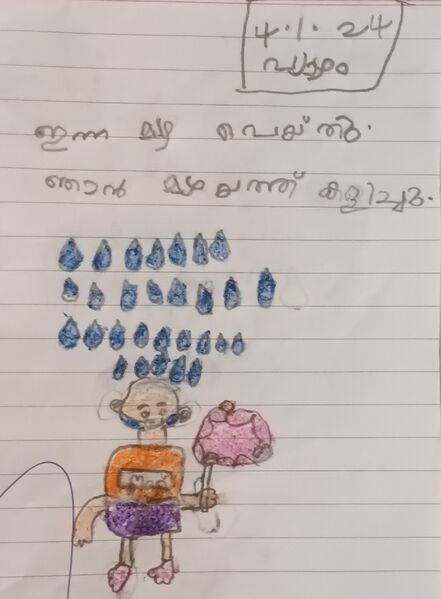 4.1.24
വ്യാഴം
ഇന്ന മഴ പെയ്തു.
ഞാൻ മഴയത്ത് കളിച്ചു.